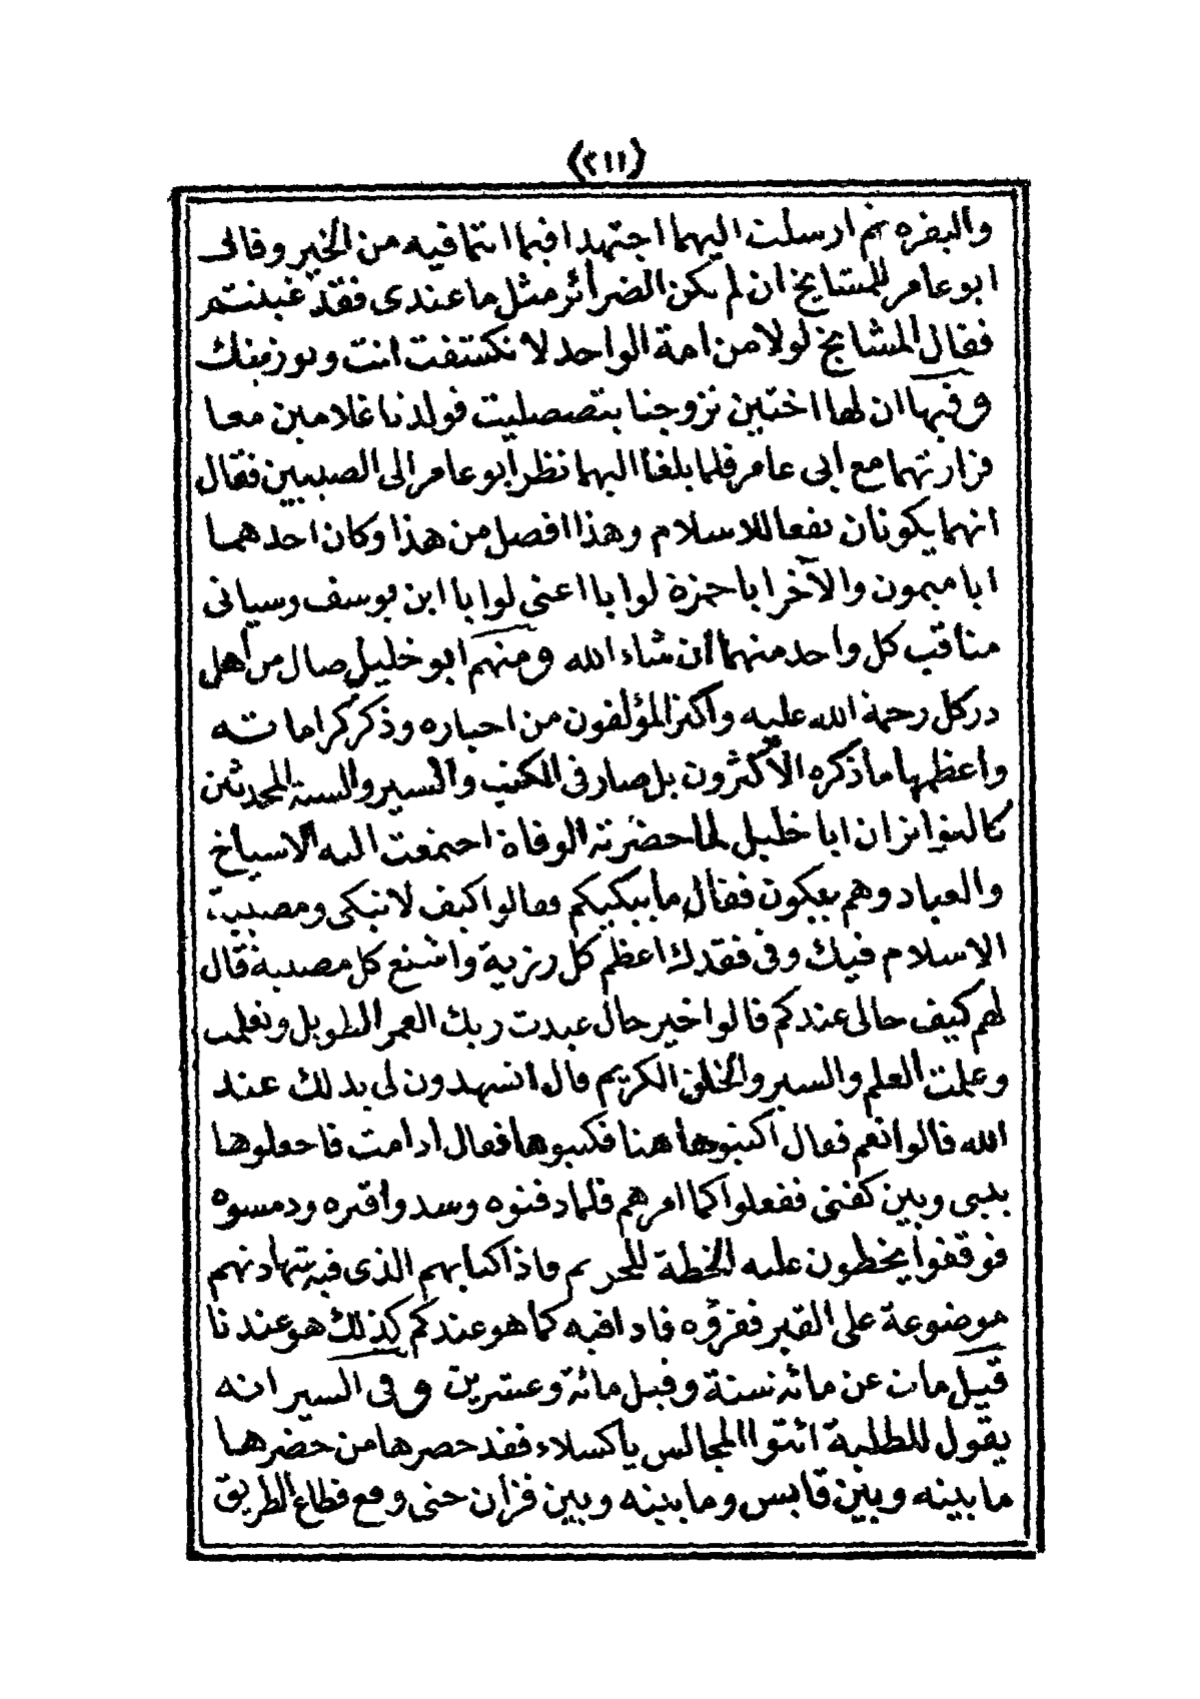 (٢١١)
والبقرة ثم ارسلت اليهما اجتهدا فيما انتما فيه من الخير وقال
ابو عامر للمشايخ ان لم تكن الضرائر مثل ما عندى فقد غبنتم
فقال المشايخ لولا من امة الواحد لانكشفت انت وبو زرفينك
وفيها ان لها اختين تزوجتا بتصصليت فولدتا غلامين معا
فزارتهما مع ابى عامر فلما بلغا اليهما نظر أبو عامر إلى الصبيين فقال
انهما يكونان نفعا للاسلام وهذا افضل من هذا وكان احدهما
ابا ميمون والآخر ابا حمزة لوابا اعنى لوابا ابن يوسف وسياتى
مناقب كل واحد منهما ان شاء الله ومنهم ابو خليل صال من أهل
دركل رحمة الله عليه واكثر المؤلفون من اخباره وذكر كراماته
واعظمها ما ذكره الأكثرون بل صار فى الكتب والسير والسنة المحدثين
كالتواتر ان ابا خليل لما حضرته الوفاة اجتمعت اليه الاشياخ
والعباد وهم يبكون فقال ما يبكيكم فقالوا كيف لا نبكى ومصيبة
الاسلام فيك وفى فقدك اعظم كل رزية واشنع كل مصيبة فقال
لهم كيف حالى عندكم قالوا خير حال عبدت ربك العمر الطويل وتعلمت
وعلمت العلم والسير والخلق الكريم قال اتشهدون لى بذلك عند
الله قالوا نعم فقال اكتبوها هنا فكتبوها فقال اذا مت فاجعلوها
بينى وبين كفنى ففعلوا كما امرهم فلما دفنوه وسدوا قبره ودمسوه
فوقفوا يخطون عليه الخطة للحريم فاذا كتابهم الذى فيه شهادتهم
موضوعة على القبر فقرؤه فاذا فيه كما هو عندكم كذلك هو عندنا
قيل مات عن مائة سنة وقيل مائة وعشرين وفى السير انه
يقول للطلبة ائتوا المجالس يا كسلاء فقد حصرها من حضرها
ما بينه وبين قابس وما بينه وبين فزان حتى وقع قطاع الطريق